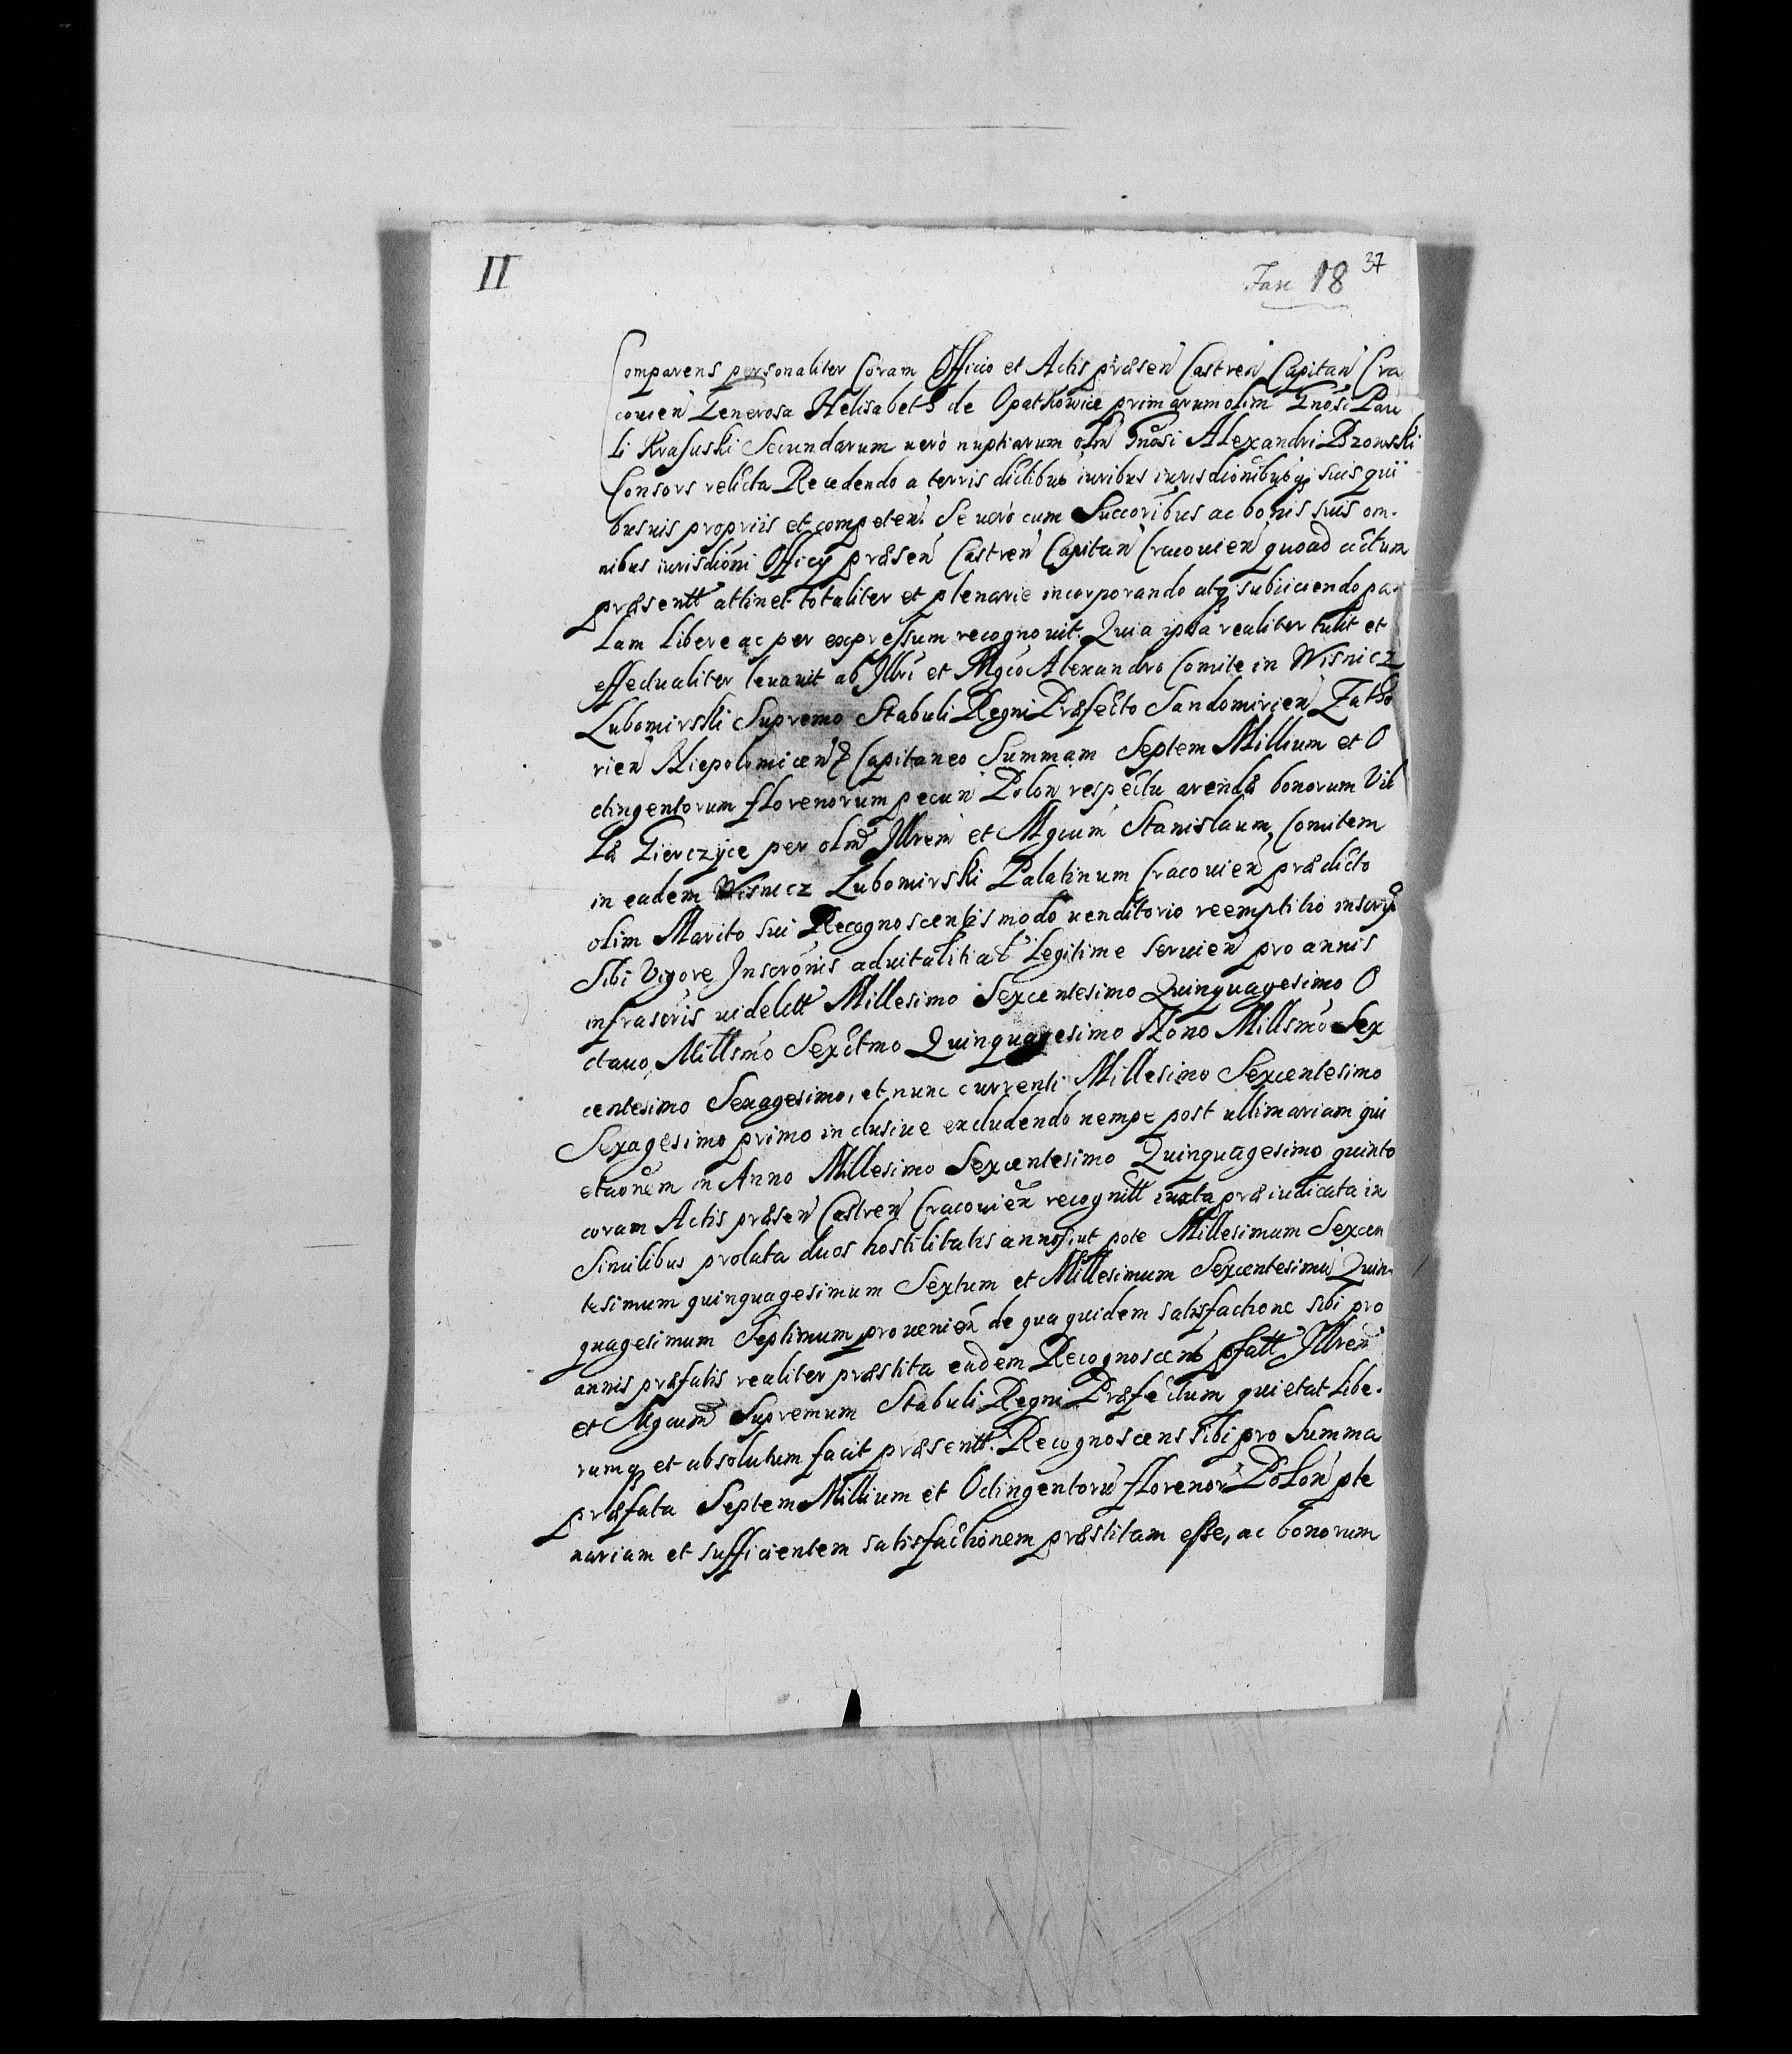 II
Fasc 18 37
Comparens personaliter Coram Officio et Actis præsen Castren Capitan Cra
couien Generosa Helisabeth de Opatkowice primarum olim Gnosi Pau
li Krasuski Secundarum uero nuptiarum olim Gnosi Alexandri Bzowski
Consors relicta Recedendo a terris dictibus iuribus iurisdionibusq suis qui
busuis propriis et competen. Se uero cum Succoribus ac bonis suis om-
nibus iurisdioni Officij præsen Castren Capitan Cracouien quoad actum
præsentt attinet totaliter et plenarie incorporando atq subiiciendo pa-
lam libere ac per expressum recognouit. Quia ipsa realiter tulit et
effectualiter leuauit ab Illri et Mgco Alexandro Comite in Wisnicz
Lubomirski Supremo Stabuli Regni Præfecto Sandomirien Zatho
rien Niepolomicen Capitaneo Summam Septem Millium et O
ctingentorum florenorum pecun Polon respectu arendæ bonorum Vil
læ Gierczyce per olim Illrem et Mgcum Stanislaum Comitem
in eadem Wisnicz Lubomirski Palatinum Cracouien prædicto
olim Marito sui Recognoscentis modo uenditorio reemptitio inscrip
Sibi Vigore Inscronis aduitalitiat Legitime seruien pro annis
infrascris uidelitt Millesimo Sexcentesimo Quinquagesimo O
ctauo, Millsmo Sexctmo Quinquagesimo Nono Millsmo Sex
centesimo Sexagesimo, et nunc currenti Millesimo Sexcentesimo
Sexagesimo primo inclusiue excludendo nempe post ultimariam qui
etaonem in Anno Millesimo Sexcentesimo Quinquagesimo quinto
coram Actis præsen Castren Cracouien recognitt iuxta præiudicata in
Similibus prolata duos hostilitatis annos, ut pote Millesimum Sexcen
tesimum quinquagesimum Sextum et Millesimum Sexcentesimu Quin-
quagesimum Septimum prouenien de qua quidem satisfactione sibi pro
annis præfatis realiter præstita eadem Recognoscens pfatt Illrem
et Mgcum Supremum Stabuli Regni Præfectum quietat libe-
rumq et absolutum facit præsentt. Recognoscens sibi pro Summa
præfata Septem Millium et Octingentoru florenor Polon ple
nariam et sufficientem satisfactionem præstitam esse, ac bonorum